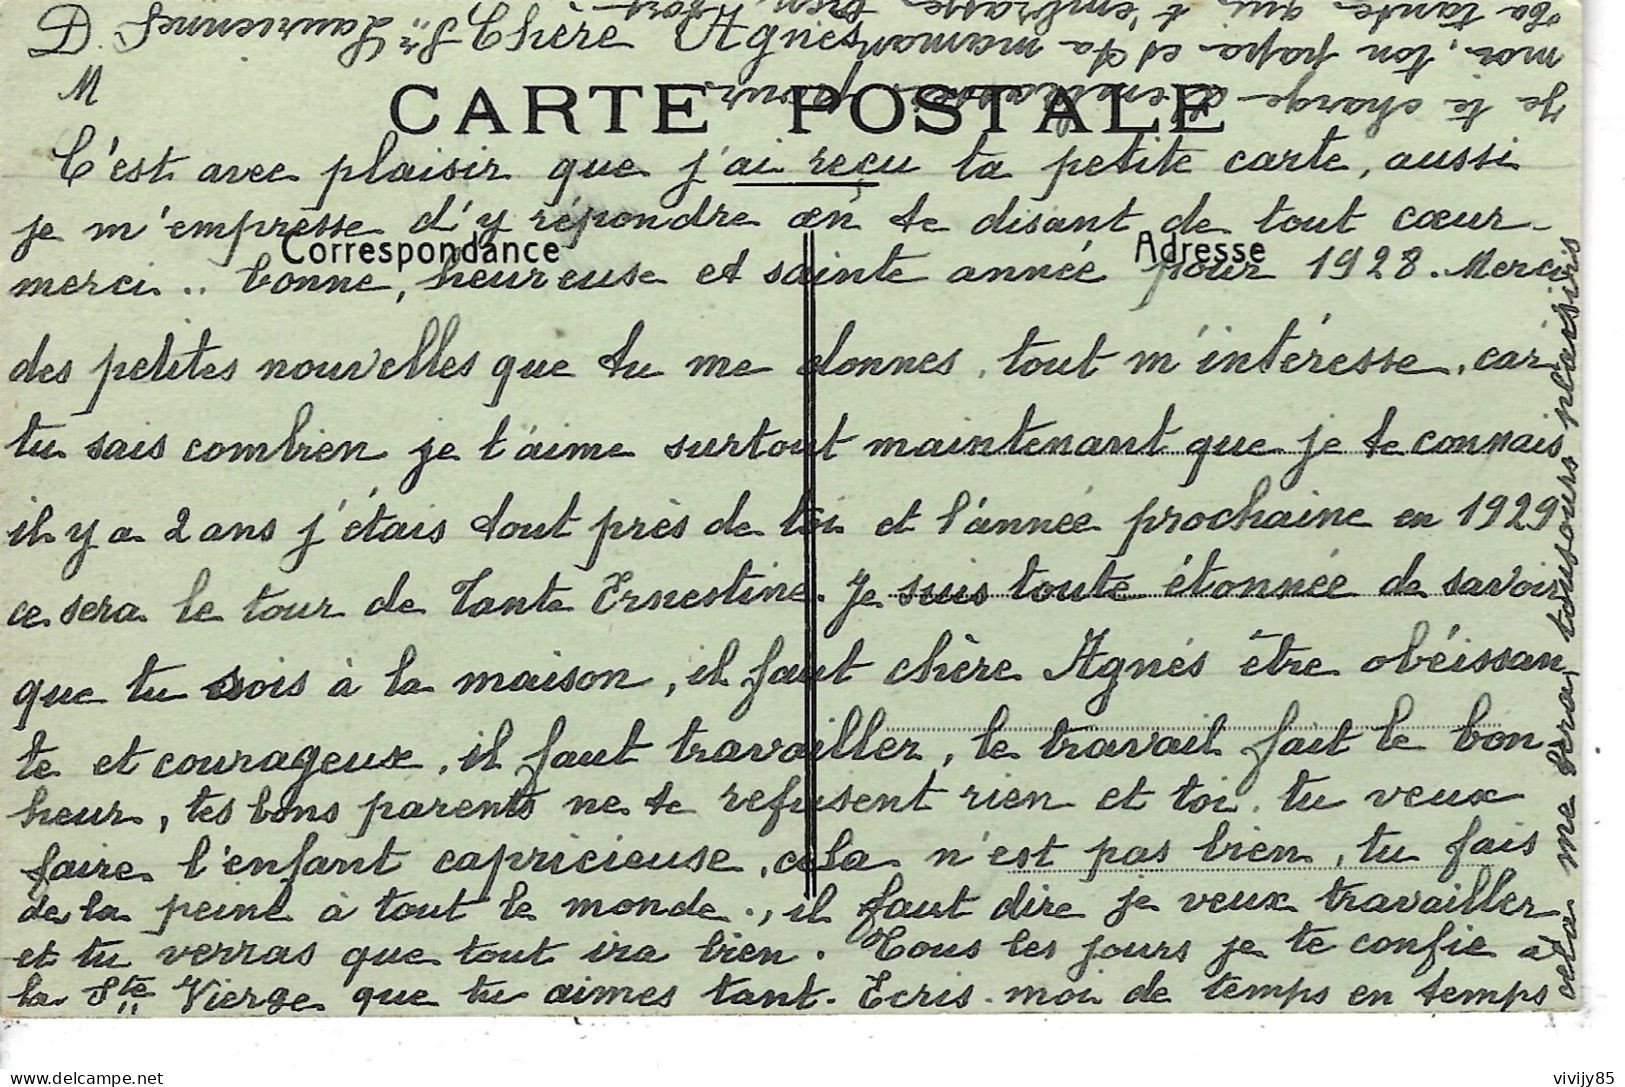 D. S.
M
Chère Agnès
CARTE POSTALE
C'est avec plaisir que j'ai reçu ta petite carte, aussi
je m'empresse d'y répondre en te disant de tout cœur
Correspondance
Adresse
merci.. bonne, heureuse et sainte année pour 1928. Merci
des petites nouvelles que tu me donnes, tout m'intéresse, car
tu sais combien je t'aime surtout maintenant que je te connais
il y a 2 ans j'étais tout près de toi et l'année prochaine en 1929
ce sera le tour de Tante Ernestine. Je suis toute étonnée de savoir
que tu sois à la maison, il faut chère Agnés être obéissan
te et courageux, il faut travailler, le travail fait le bon
heur, tes bons parents ne te refusent rien et toi tu veux
faire l'enfant capricieuse, cela n'est pas bien, tu fais
de la peine à tout le monde., il faut dire je veux travailler
et tu verras que tout ira bien. Tous les jours je te confie à
la Ste Vierge que tu aimes tant. Ecris-moi de temps en temps
cela me fera toujours plaisir
Je te charge d'embrasser pour
moi, ton papa et ta maman
Ta tante qui t'embrasse bien fort
Sr Lauriennes
vivijy85